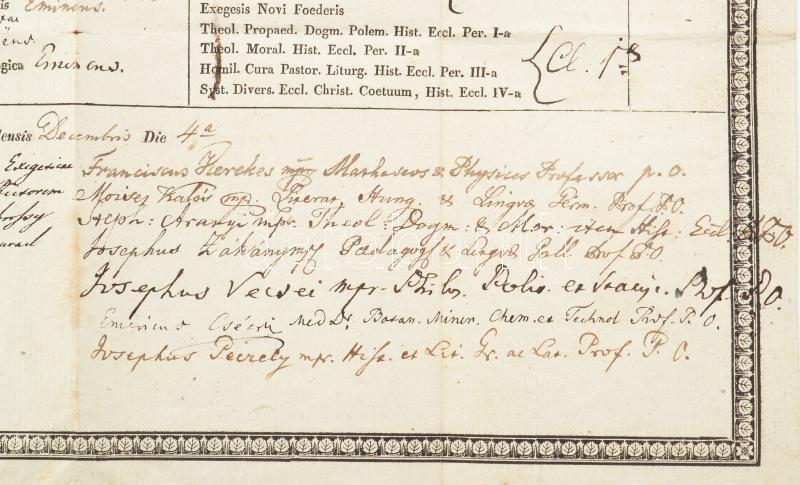 is Eminens.
Exegesis Novi Foederis
Theol. Propaed. Dogm. Polem. Hist. Eccl. Per. I-a
Theol. Moral. Hist. Eccl. Per. II-a
Homil. Cura Pastor. Liturg. Hist. Eccl. Per. III-a
Syst. Divers. Eccl. Christ. Coetuum, Hist. Eccl. IV-a
Cl. 1
ogica Eminens.
ensis Decembris Die 4a
Exegeticae
Franciscus Kerekes mpr Matheseos & Physices Professor p. o.
Moises Kalós mpr. Literat. Hung. & Lingvæ Germ. Prof. P.O.
Steph: Aranyi mpr. Theol: Dogm: & Mor: item Hist: Eccl. P.O.
Josephus Zákány mpr Pædagog & Lingvæ Gall Prof P.O.
Josephus Vecsei mpr. Philos. Polit. et Prof. P.O.
Emericus Csécsi Med Dr. Botan. Miner. Chem. et Technol Prof. P. O.
Josephus Peczely mpr. Hist. et Lit. Gr. ac Lat. Prof. P. O.